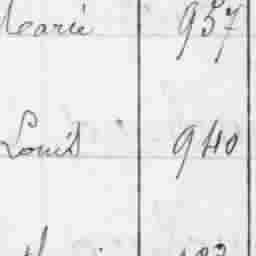 Marie 957
Louis 940